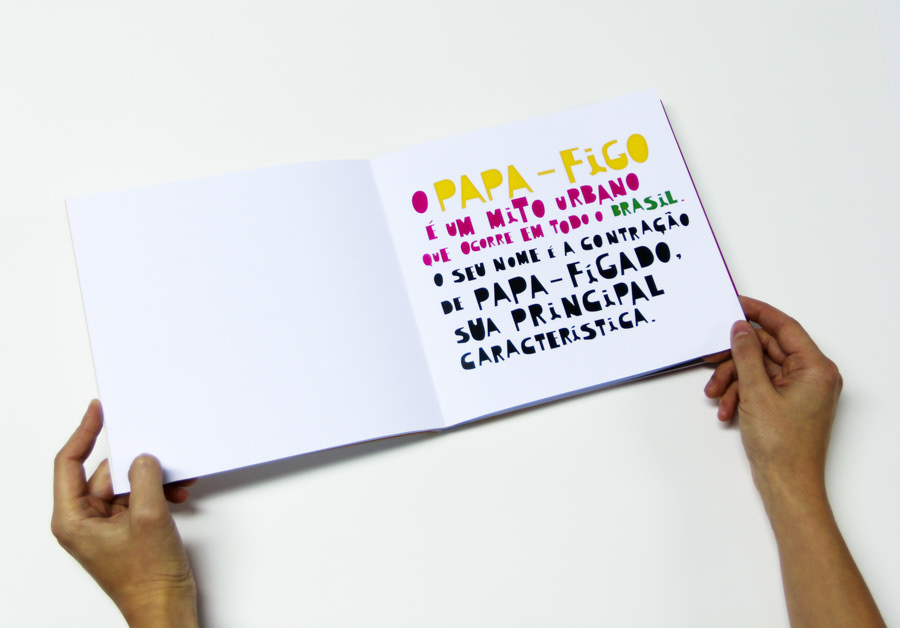 O PAPA-FiGO
É UM MiTO URBANO
QUE OCORRE EM TODO O BRASiL.
O SEU NOME É A CONTRAÇÃO
DE PAPA-FÍGADO,
SUA PRiNCiPAL
CARACTERÍSTiCA.